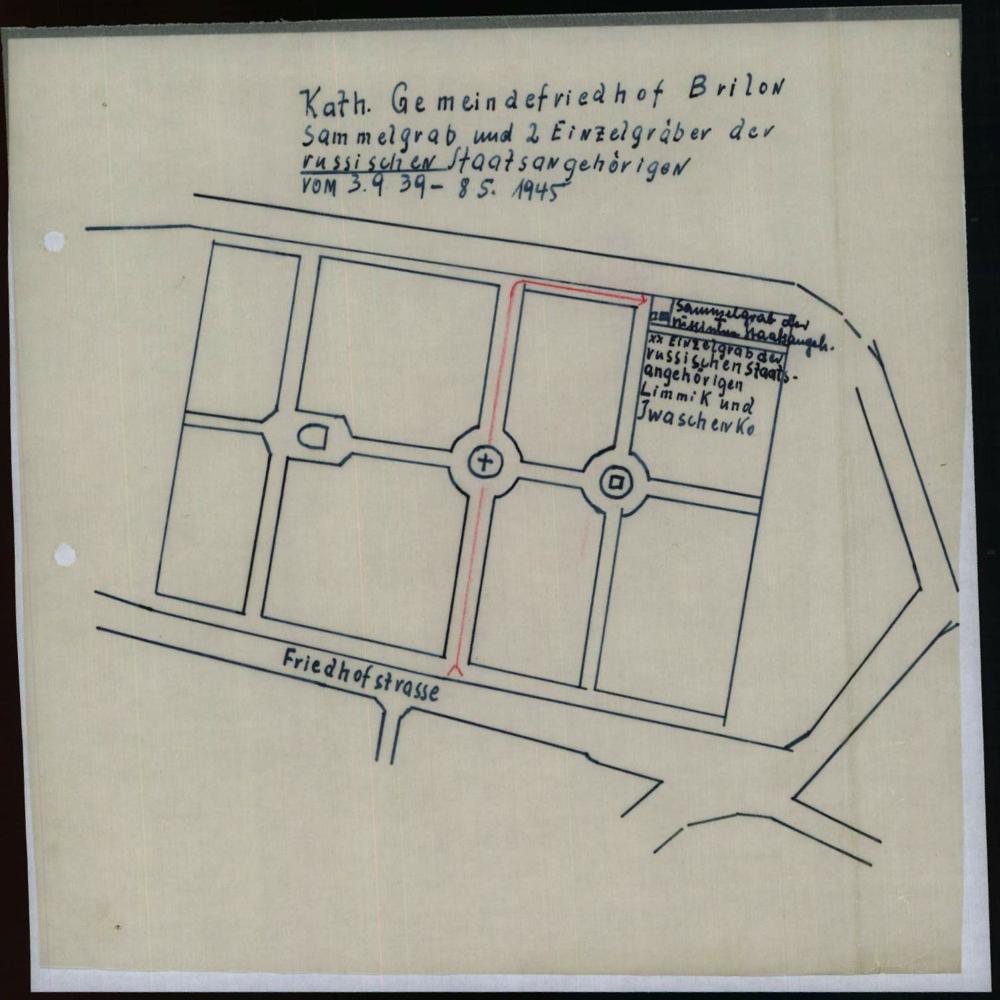 Kath. Gemeindefriedhof Brilon
Sammelgrab und 2 Einzelgräber der
russischen Staatsangehörigen
VOM 3.9 39 – 8 5. 1945
Sammelgrab der
russischen Staatsangeh.
xx Einzelgrab der
russischen Staats-
angehörigen
Limmik und
Jwaschenko
Friedhofstrasse